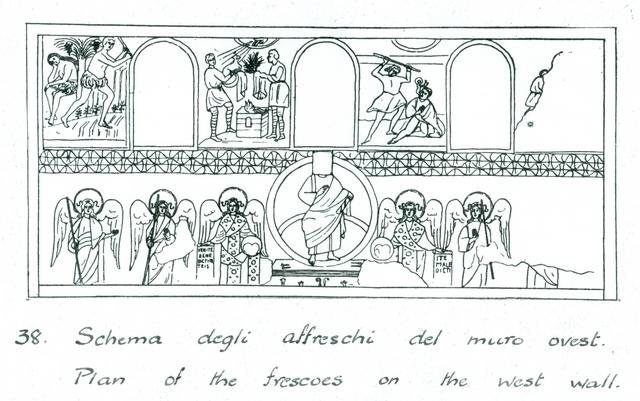 BENE
ITE
MALE
DICTI
38. Schema degli affreschi del muro ovest.
Plan of the frescoes on the west wall.